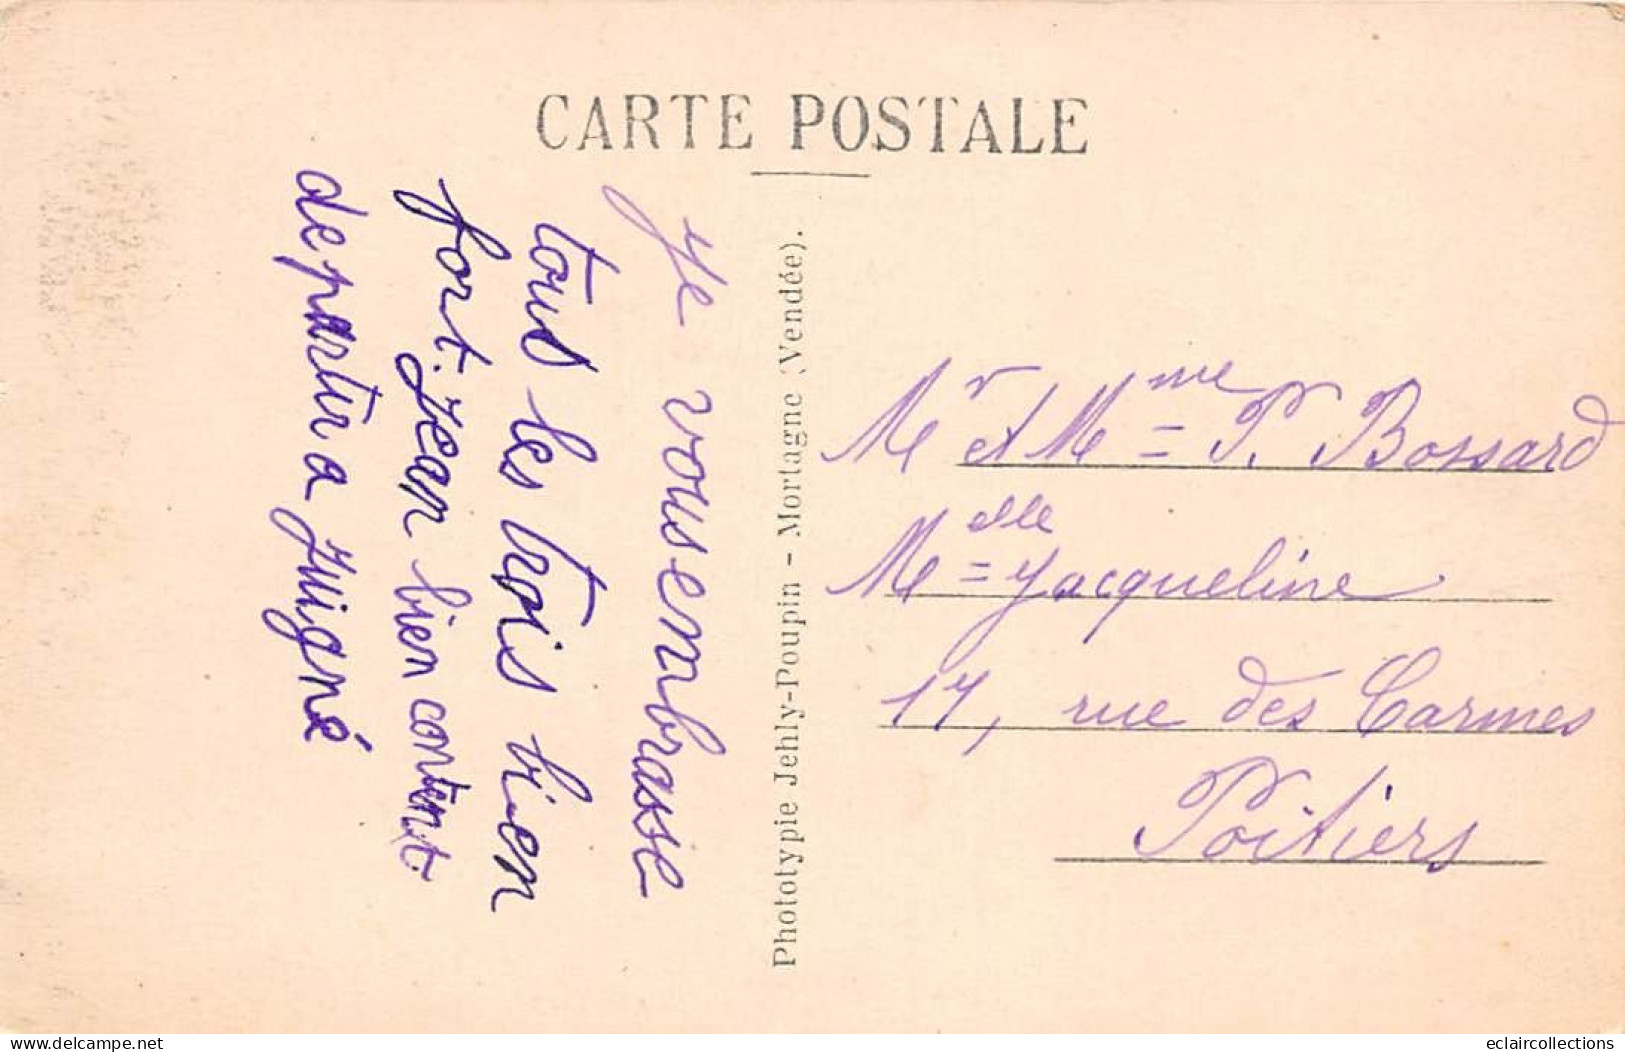 CARTE POSTALE
Je vous embrasse
tous les trois bien
fort. Jean bien content
de partir a Juigné
Phototypie Jehly-Poupin - Mortagne (Vendée).
Mr et Mme = P. Bossard
Melle = Jacqueline
17, rue des Carmes
Poitiers
www.delcampe.net
eclaircollections